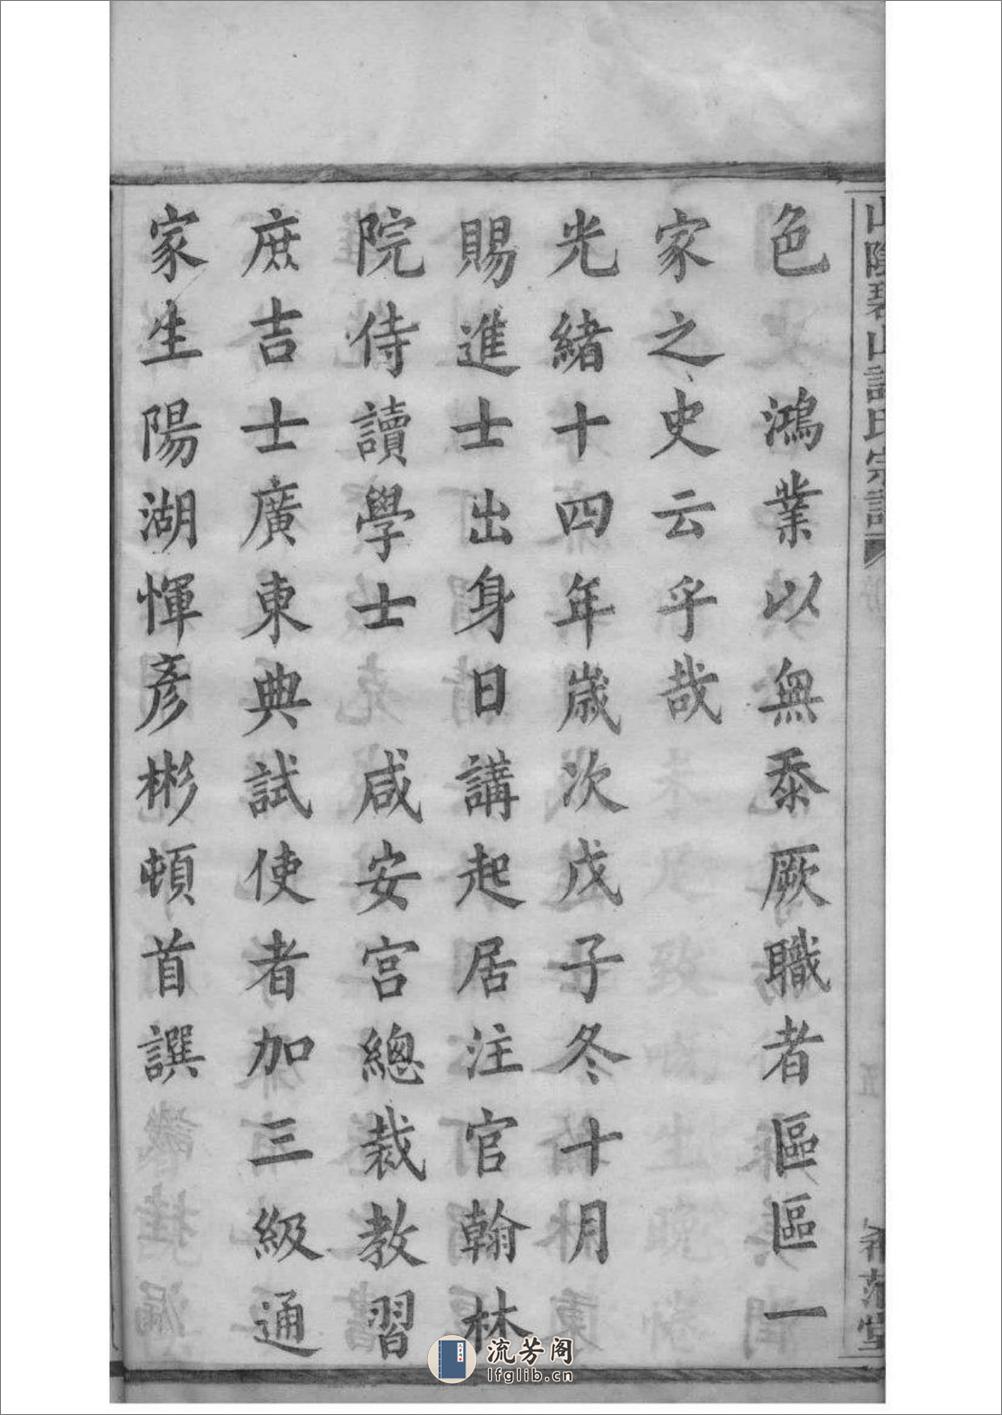 色　鴻業以無忝厥職者區區一
家之史云乎哉
光緒十四年歲次戊子冬十月
賜進士出身日講起居注官翰林
院侍讀學士　咸安宮總裁教習
庶吉士廣東典試使者加三級通
家生陽湖惲彥彬頓首譔
山陰碧山許氏宗譜
五
流芳阁
lfglib.cn